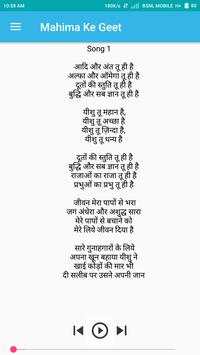 10:58 AM
180K/s
BSNL MOBILE
Mahima Ke Geet
Song 1
आदि और अंत तू ही है
अल्फा और ओमेगा तू ही है
दूतों की स्तुति तू ही है
बुद्धि और सब ज्ञान तू ही है
यीशु तू महान है,
यीशु तू अच्छा है
यीशु तू जिन्दा है,
यीशु तू धन्य है
दूतों की स्तुति तू ही है
बुद्धि और सब ज्ञान तू ही है
राजाओं का राजा तू ही है
प्रभुओं का प्रभु तू ही है
जीवन मेरा पापों से भरा
जग अंधेरा और अशुद्ध सारा
मेरे पापों से बचाने को
मेरे लिये जीवन दिया है
सारे गुनाहगारों के लिये
अपना खून बहाया यीशु ने
खाई कोड़ों की मार भी
दी सलीब पर उसने अपनी जान